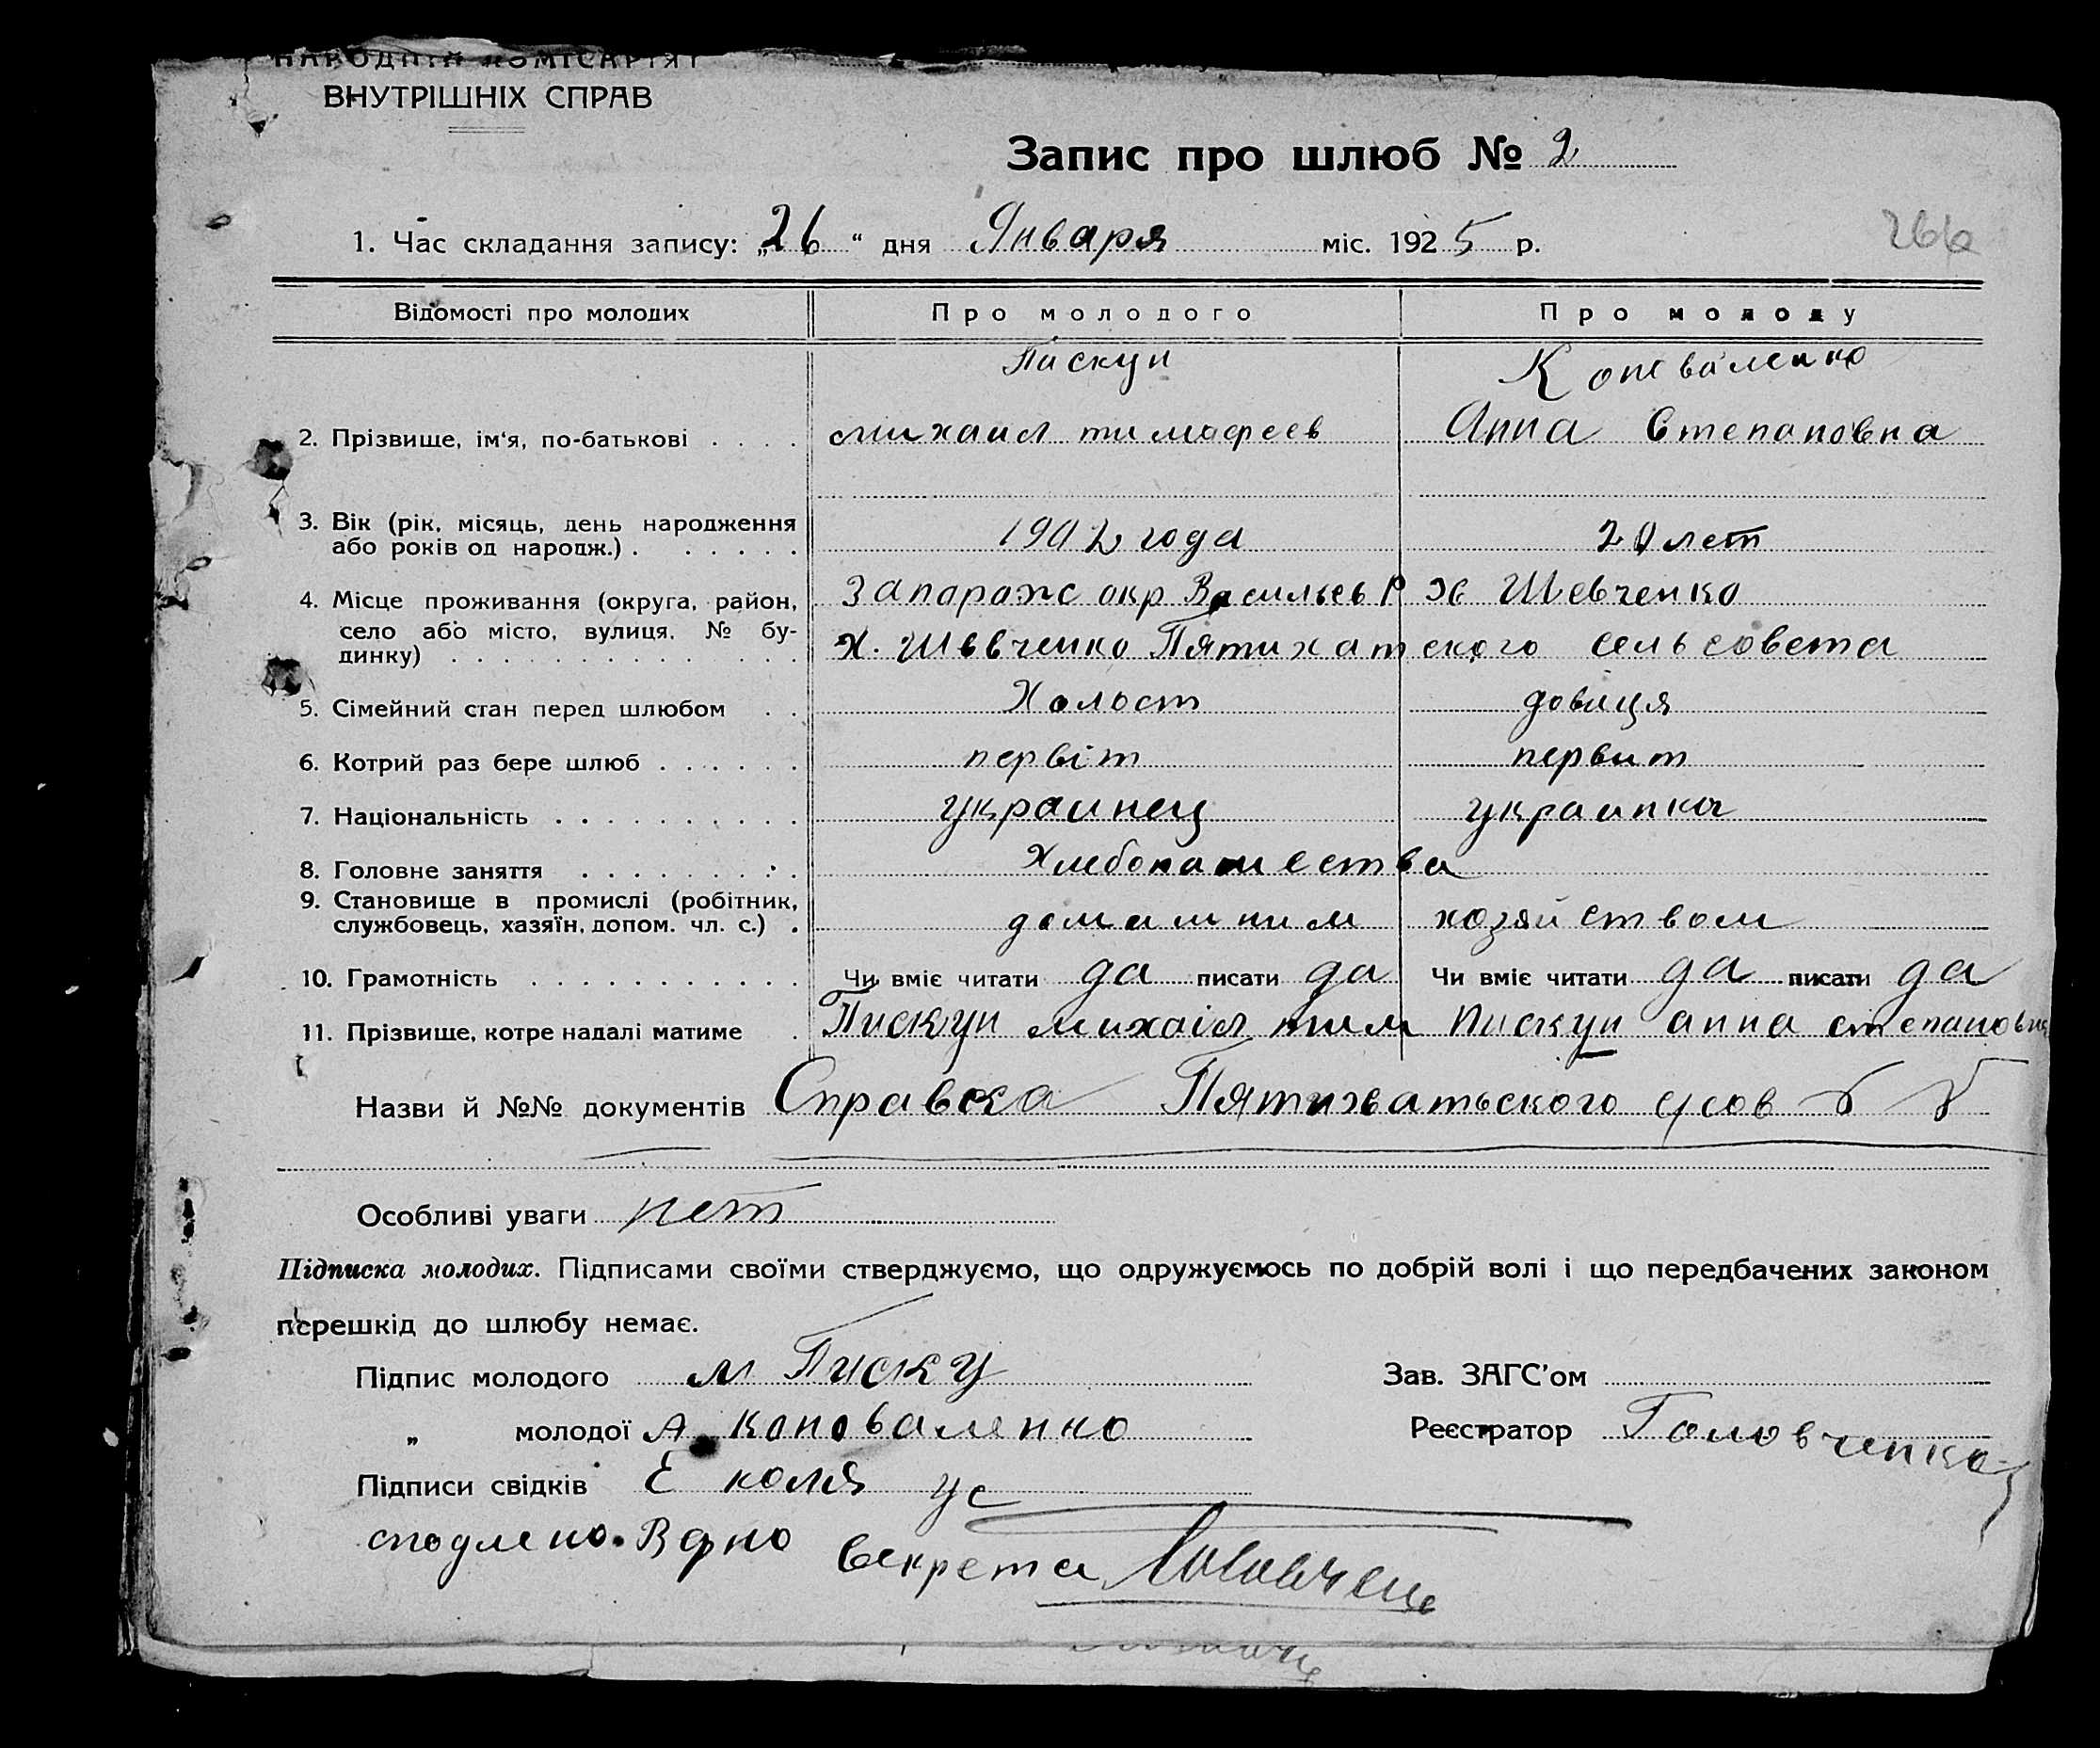 НАРОДНІЙ КОМІСАРІЯТ
ВНУТРІШНІХ СПРАВ
Запис про шлюб № 2
1. Час складання запису: „26“ дня Января міс. 1925 р.
266
Відомості про молодих Про молодого Про молоду
Пискун
2. Прізвище, ім‘я, по-батькові . . . . михаил тимафеев Анна Степановна
3. Вік (рік, місяць, день народження
або років од народж.) . . . . . . 1902 года 20 лет
4. Місце проживання (округа, район, Запарож окр Васильев Р Х Шевченко
село або місто, вулиця, № бу-
динку) . . . . . . . . . . . . . . . Х. Шввченко Пятихатского сельсовета
5. Сімейний стан перед шлюбом . . Холост довиця
6. Котрий раз бере шлюб . . . . . . первіт первит
7. Національність . . . . . . . . . . украинец украинка
8. Головне заняття . . . . . . . . . Хлебопашества
9. Становище в промислі (робітник,
службовець, хазяїн, допом. чл. с.) . домашним хозяйством
10. Грамотність . . . . . . . . . . . Чи вміє читати да писати да Чи вміє читати да писати да
11. Прізвище, котре надалі матиме . Пискун михаіл тим Пискун анна степановна
Назви й №№ документів Справка Пятихатьского
Особливі уваги нет
Підписка молодих. Підписами своїми стверджуємо, що одружуємось по добрій волі і що передбачених законом
перешкід до шлюбу немає.
Підпис молодого м Писку Зав. ЗАГС’ом
„ молодої А коноваленко Реєстратор Головченко
Підписи свідків Е коля ус
Секрета